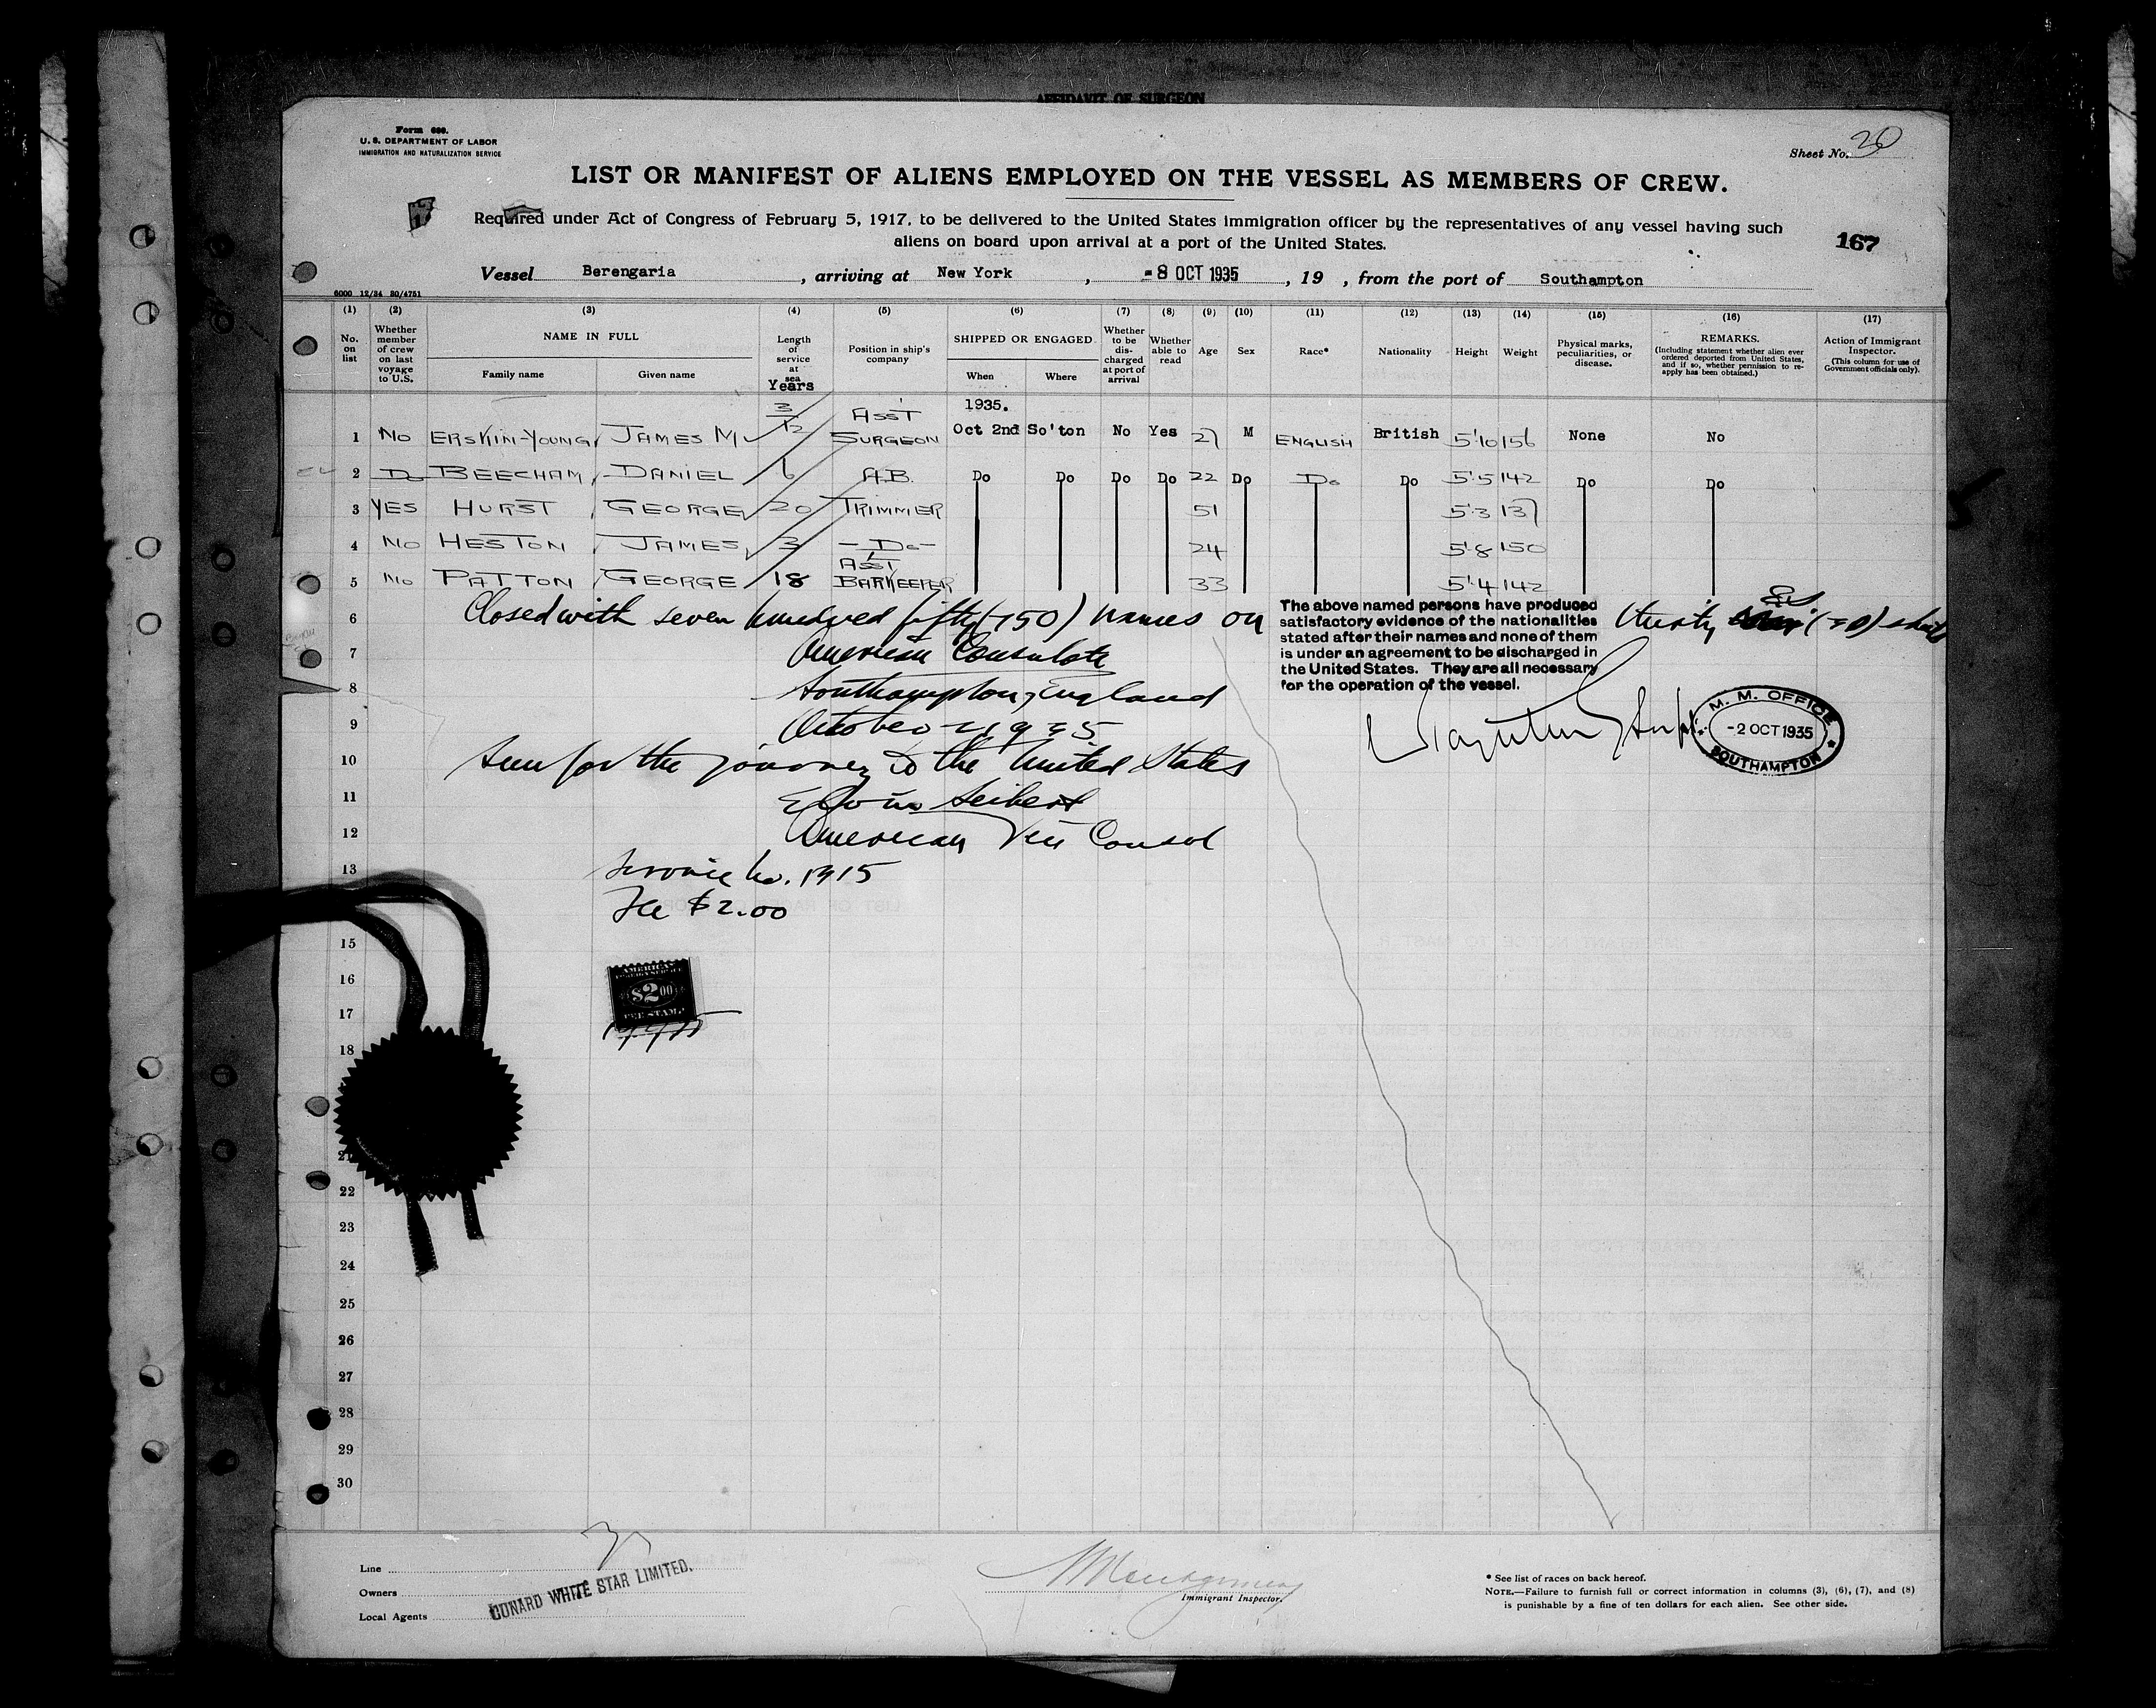 AFFIDAVIT OF SURGEON
Form 680.
U. S. DEPARTMENT OF LABOR
IMMIGRATION AND NATURALIZATION SERVICE
Sheet No. 30
LIST OR MANIFEST OF ALIENS EMPLOYED ON THE VESSEL AS MEMBERS OF CREW.
Required under Act of Congress of February 5, 1917, to be delivered to the United States immigration officer by the representatives of any vessel having such
aliens on board upon arrival at a port of the United States.
167
Vessel Berengaria, arriving at New York, -8 OCT 1935, 19 , from the port of Southampton
6000 12/34 30/4751
(1) (2) (3) (4) (5) (6) (7) (8) (9) (10) (11) (12) (13) (14) (15) (16) (17)
No. on list
Whether member of crew on last voyage to U.S.
NAME IN FULL
Family name
Given name
Length of service at sea
Years
Position in ship's company
SHIPPED OR ENGAGED
When
Where
Whether to be discharged at port of arrival
Whether able to read
Age
Sex
Race*
Nationality
Height
Weight
Physical marks, peculiarities, or disease.
REMARKS.
(Including statement whether alien ever ordered deported from United States, and if so, whether permission to reapply has been obtained.)
Action of Immigrant Inspector.
(This column for use of Government officials only).
1935.
1 No ERSKIN-YOUNG JAMES M. 3/12 ASS'T SURGEON Oct 2nd So'ton No Yes 27 M ENGLISH British 5'10 156 None No
2 Do BEECHAM DANIEL 6 A.B. Do Do Do Do 22 Do Do Do 5'5 142 Do Do
3 YES HURST GEORGE 20 TRIMMER 51 5'3 137
4 No HESTON JAMES 3 -Do- 24 5'8 150
5 No PATTON GEORGE 18 ASS'T BARKEEPER 33 5'4 142
6 Closed with seven hundred fifty (750) names on thirty (30) sheets
The above named persons have produced
satisfactory evidence of the nationalities
stated after their names and none of them
is under an agreement to be discharged in
the United States. They are all necessary
for the operation of the vessel.
7 American Consulate
8 Southampton, England
9 October 2 1935
M. M. OFFICE
-2 OCT 1935
SOUTHAMPTON
10 Seen for the journey to the United States
11 Edwin Seibert
12 American Vice Consul
13 Service No. 1915
Fee $2.00
15
16
AMERICAN
FOREIGN SERVICE
$2.00
FEE STAMP
17
18
21
22
23
24
25
26
27
28
29
30
Line
Owners
Local Agents
CUNARD WHITE STAR LIMITED.
Montgomery
Immigrant Inspector.
* See list of races on back hereof.
NOTE.—Failure to furnish full or correct information in columns (3), (6), (7), and (8)
is punishable by a fine of ten dollars for each alien. See other side.